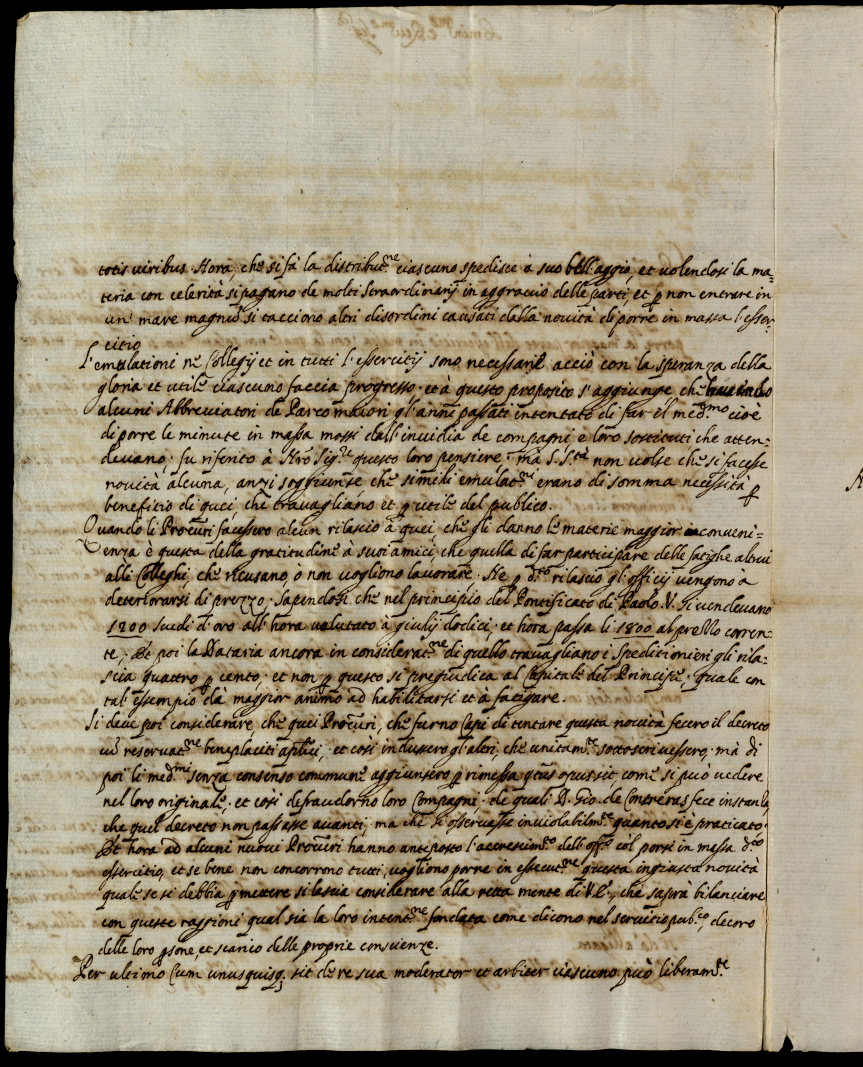 totis viribus. Hora, che si fà la distribut.ne ciascuno spedisce à suo bell'aggio, et volendosi la ma=
teria con celerità si pagano de molti straordinarij in aggravio delle parti, et p non entrare in
un' mare magnũ si tacciono altri disordini causati dalla novità di porre in massa l'esser=
citio
L'emulationi ne Collegij et in tutti l'essercitij sono necessarie acciò con la speranza della
gloria et utile ciascuno faccia progresso. et à questo proposito s'aggiunge che havendo
alcuni Abbreviatori de Parco maiori gl'anni passati intentato di far il med.mo cioè
di porre le minute in massa mossi dall'invidia de compagni e loro sostituti che atten=
devano, fu riferito à Nro Sig.re questo loro pensiere, mà S. S.tà non volse che si facesse
novità alcuna, anzi soggiunse che simili emulat.ni erano di somma necessità p
beneficio di quei, che travagliano et p utile del publico.
Quando li Procũri facessero alcun rilascio à quei, che gli danno le materie maggior inconveni=
enza è questa della gratitudine à suoi amici, che quella di far participare delle fatighe altrui
alli Colleghi, che ricusano, ò non vogliono lavorare. Ne p d.to rilascio gl'officij vengono à
deteriorarsi di prezzo. Sapendosi che nel principio del Pontificato di Paolo V. si vendevano
1200 scudi d'oro all'hora valutato à giulij dodici, et hora passa li 1800 al prezzo corren=
te, Et poi la Dataria ancora in considerat.ne di quello travagliano i Speditionieri gli rila=
scia quattro p cento, et non p questo si pregiudica al Capitale del Principe, quale con
tal essempio dà maggior animo ad habilitarsi et à fatigare.
Si deve poi considerare, che quei Procũri, che furno Capi di tentare questa novità fecero il decreto
cũ reservat.ne beneplaciti aplici, et così indussero gl'altri, che unitam.te sottoscrivessero, mà di
poi li med.mi senza consenso commune aggiunsero p rimessa qtus opus sit, come si può vedere
nel loro originale, et così defraudorno loro Compagni. de quali D. Gio. de Contreras fece instanza,
che quel decreto non passasse avanti, ma che si osservasse inviolabilm.te quanto si è praticato.
Et hora ad alcuni nuovi Procũri hanno anteposto l'accrescim.to dell'off.o col porsi in massa d.to
essercitio, et se bene non concorrono tutti, vogliono porre in essecut.ne questa ingiusta novità
quale se si debbia pmettere si lascia considerare alla retta mente di V.E., che saprà bilanciare
con queste raggioni qual sia la loro intent.ne fondata come dicono nel servitio pub.co, decoro
delle loro psone, et scarico delle proprie conscienze.
Per ultimo Cum unusquisq. sit de re sua moderator et arbiter ciascuno può liberam.te